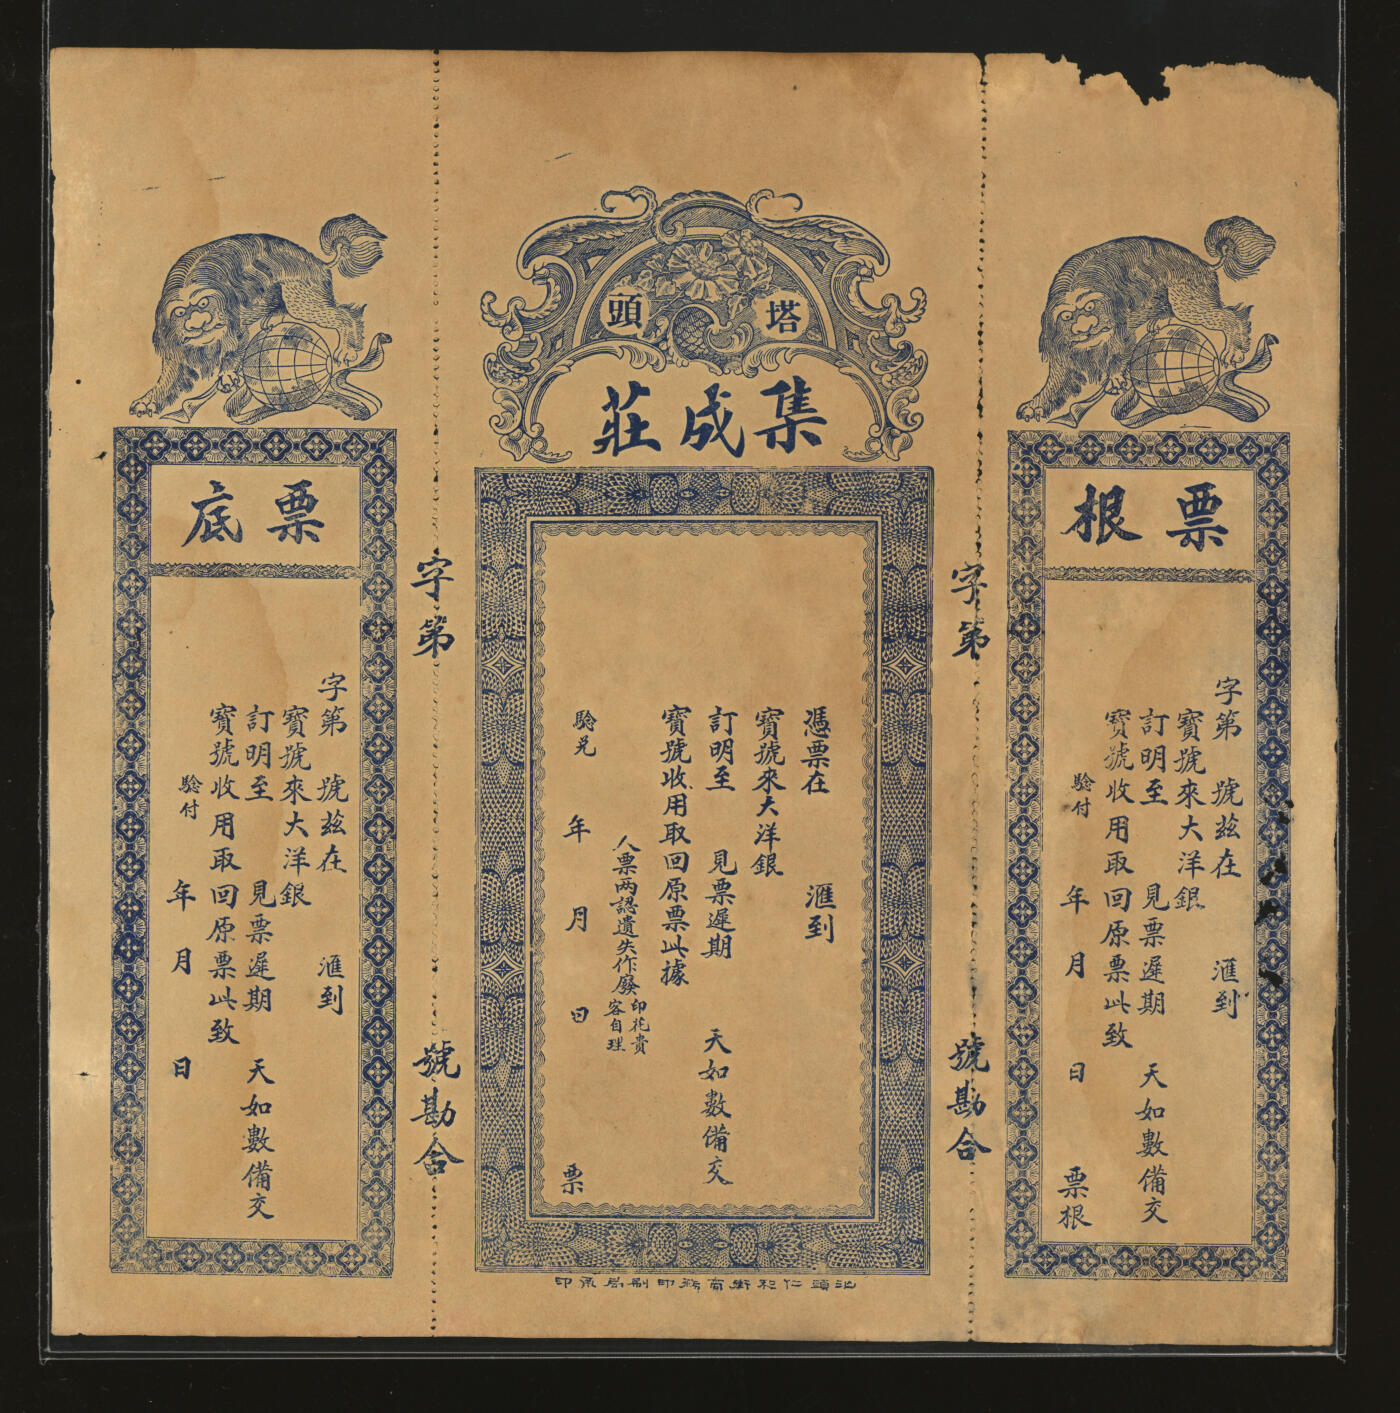 票根
字第 號茲在 滙到
寶號來大洋銀
訂明至 見票遲期 天如數備交
寶號收用取回原票此致
驗付
年 月 日 票根
字第 號勘合
塔頭
集成莊
憑票在 滙到
寶號來大洋銀
訂明至 見票遲期 天如數備交
寶號收用取回原票此據
人票兩認遺失作廢
印花貴
客自理
驗兌 年 月 日 票
汕頭仁和街商務印刷局承印
字第 號勘合
票底
字第 號茲在 滙到
寶號來大洋銀
訂明至 見票遲期 天如數備交
寶號收用取回原票此致
驗付
年 月 日